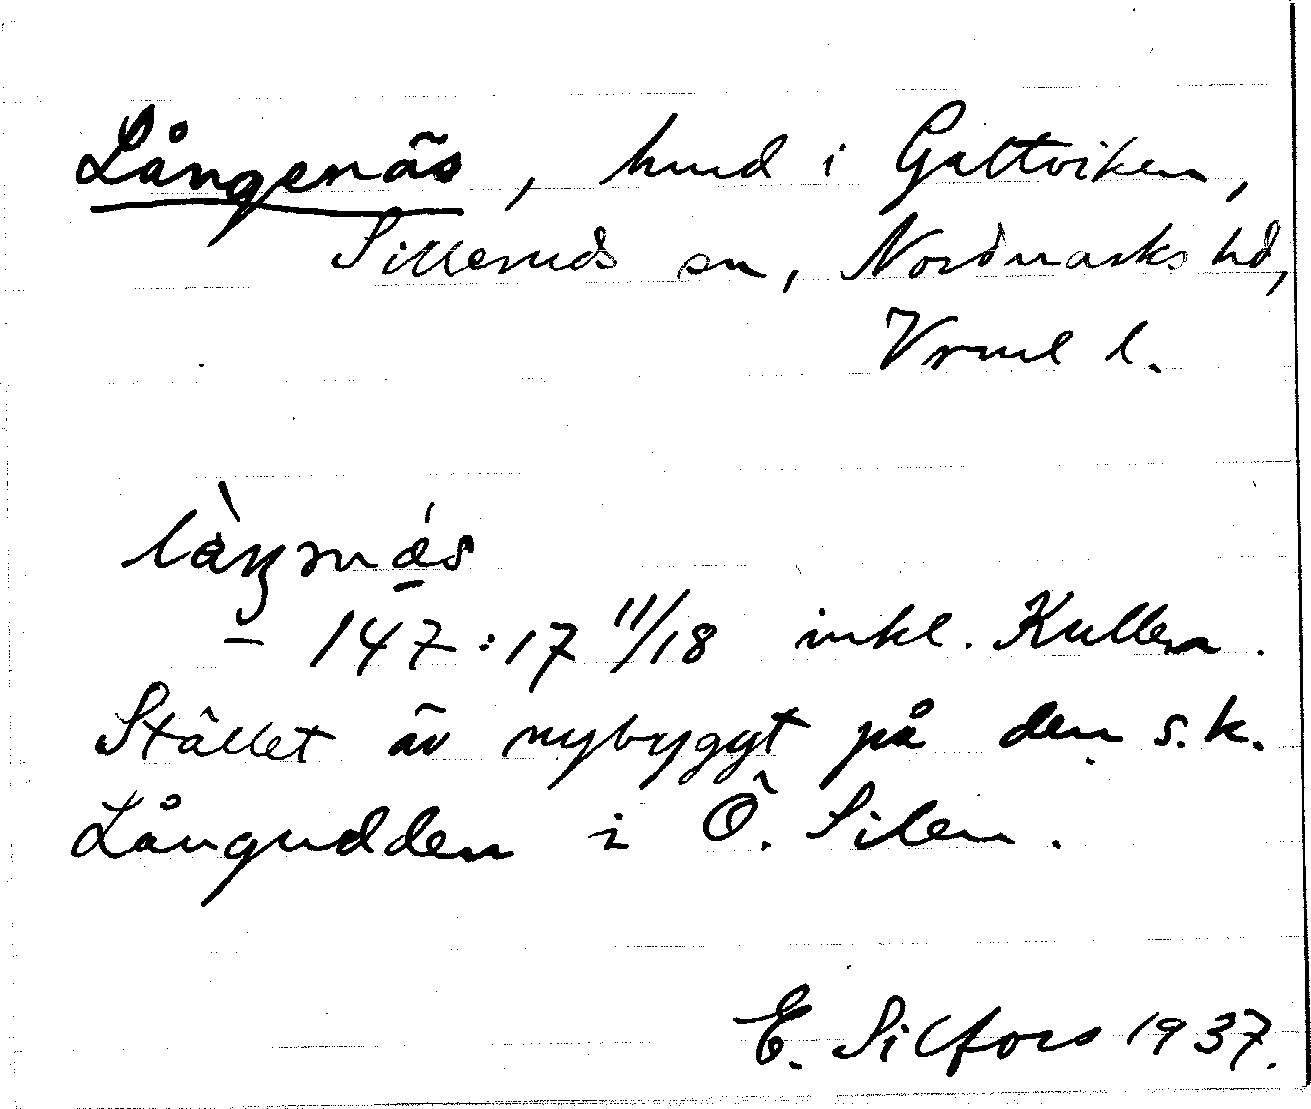 Långenäs, hmd i Galtviken,
Silleruds sn, Nordmarks hd,
Vrml l.
làŋənǽs
– 147:17 11/18 inkl. Kullen.
Stället är nybyggt på den s.k.
Långudden i Ö. Silen.
E. Silfors 1937.